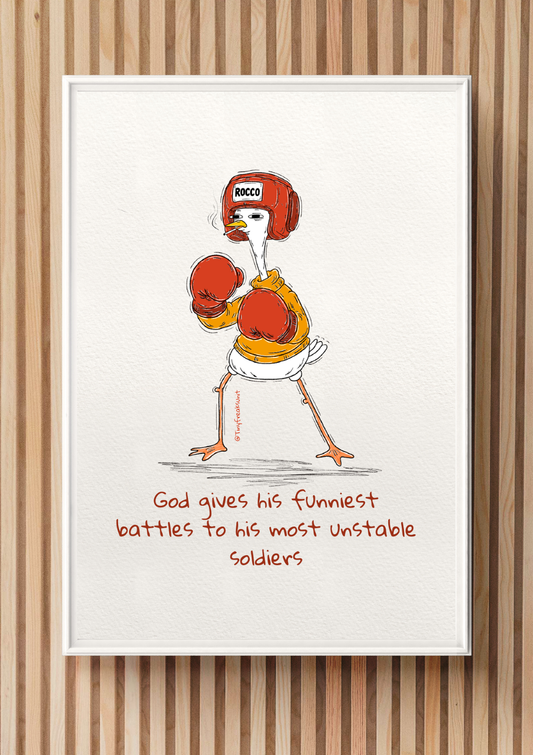 ROCCO
@Tinyfreaksunit
God gives his funniest
battles to his most unstable
soldiers